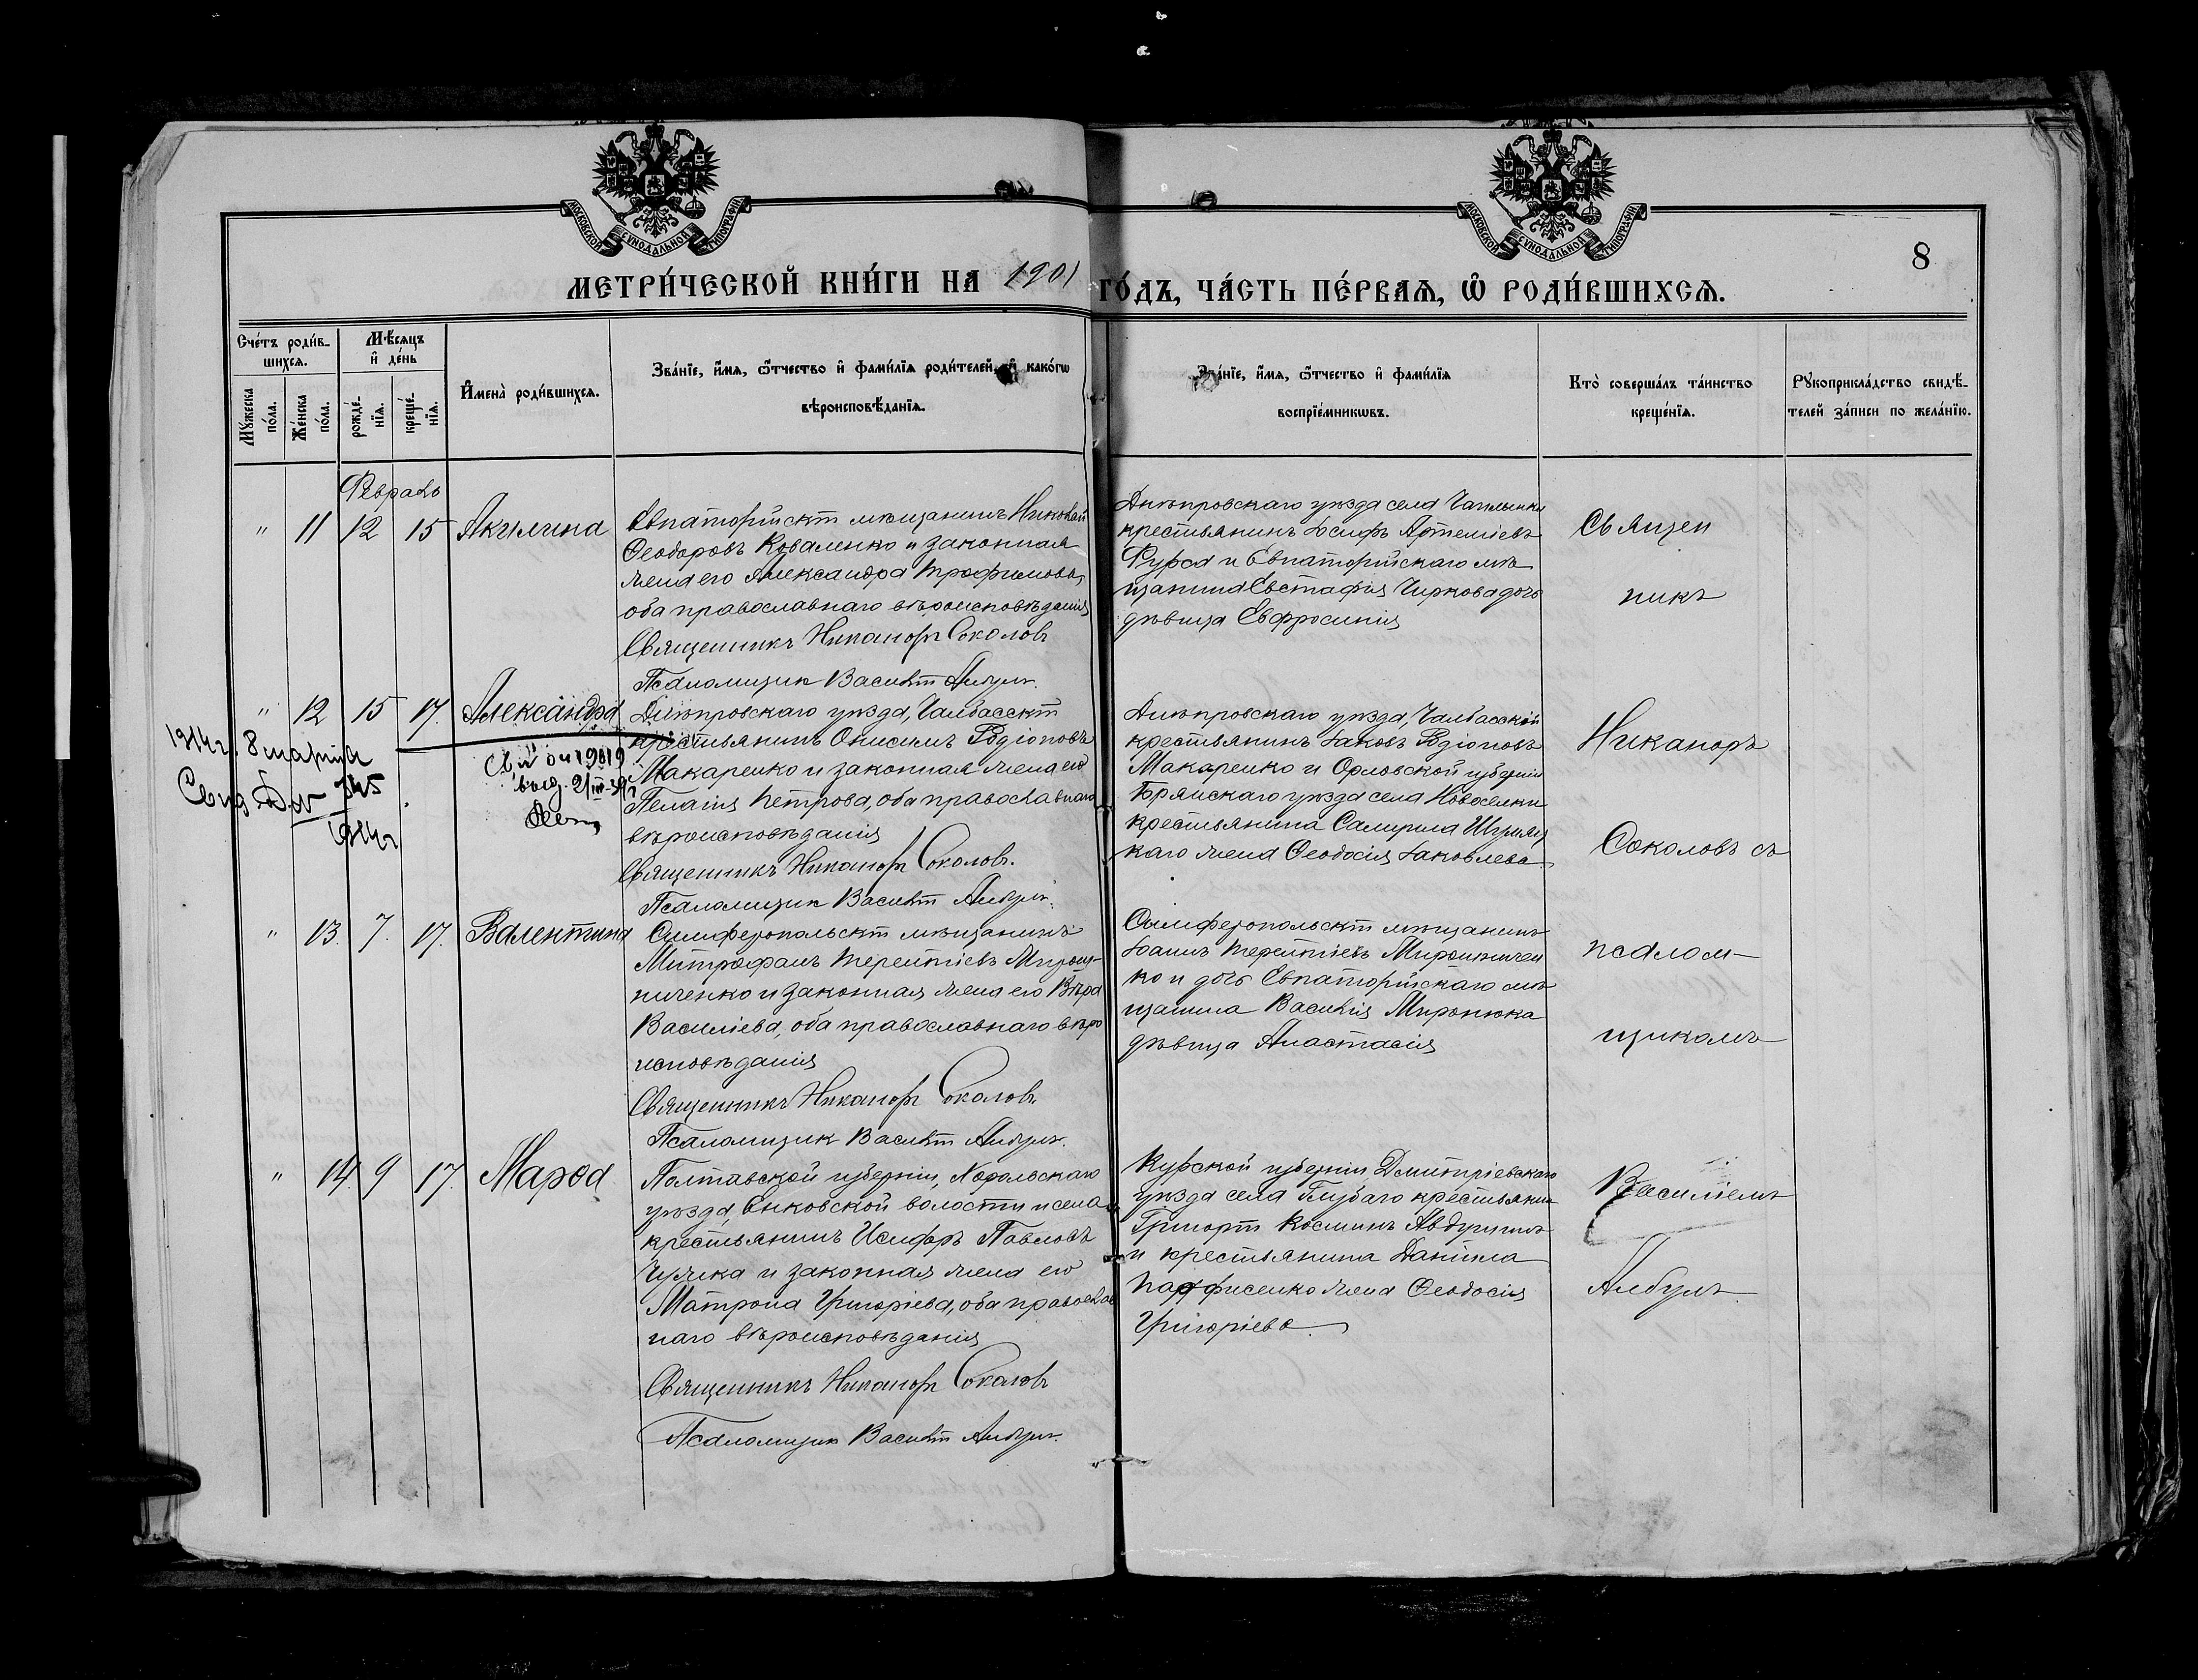 МОСКОВСКОЙ СѴНОДАЛЬНОЙ ТИПОГРАФІИ
МОСКОВСКОЙ СѴНОДАЛЬНОЙ ТИПОГРАФІИ
8
МЕТРИ́ЧЕСКОЙ КНИ́ГИ НА 1901 ГО́ДЪ, ЧА́СТЬ ПЕ́РВАѦ, Ѡ҆ РОДИ́ВШИХСѦ.
Сче́тъ роди́в-
шихсѧ.
Мѣ́сѧцъ
и҆ де́нь
Мꙋ́жеска
по́ла.
Же́нска
по́ла.
рожде́-
нїѧ.
креще́-
нїѧ.
И҆мена̀ роди́вшихсѧ.
Зва́нїе, и҆́мѧ, ѻ҆́тчество и҆ фами́лїѧ роди́телей, и҆ како́гѡ
вѣроисповѣ́данїѧ.
Зва́нїе, и҆́мѧ, ѻ҆́тчество и҆ фами́лїѧ
воспрїе́мникѡвъ.
Кто̀ соверша́лъ та́инство
креще́нїѧ.
Рꙋкоприкла́дство свидѣ́-
телей за́писи по жела́нїю.
Февраль
" 11 12 15 Акилина
Евпаторійскій мѣщанинъ Николай
Ѳеодоровъ Коваленко и законная
жена его Александра Трофимова,
оба православнаго вѣроисповѣданія
Священникъ Никаноръ Соколовъ
Псаломщик Василій Албулъ.
Днѣпровскаго уѣзда села Чаплынки
крестьянинъ Іосифъ Артеміевъ
Фурса и Евпаторійскаго мѣ
щанина Евстафія Чиркова дочь
дѣвица Евфросинія
Священ
никъ
" 12 15 17. Александра
1914 г. 8 марта
Свид.
745
1914 г
выд.
Днѣпровскаго уѣзда, Чалбасскій
крестьянинъ Онисимъ Родіоновъ
Макаренко и законная жена его
Пелагія Петрова, оба православнаго
вѣроисповѣданія
Священникъ Никаноръ Соколовъ.
Псаломщик Василій Албулъ.
Днѣпровскаго уѣзда, Чалбасскій
крестьянинъ Іаковъ Родіоновъ
Макаренко и Орловской губерніи
Брянскаго уѣзда села Новоселки
крестьянина
каго жена Ѳеодосія Іаковлева
Никаноръ
Соколовъ съ
" 13. 7. 17. Валентина
Симферопольскій мѣщанинъ
Митрофанъ Терентіевъ Мирош-
ниченко и законная жена его Вѣра
Василіева, оба православнаго вѣро
исповѣданія
Священникъ Никаноръ Соколовъ.
Псаломщик Василій Албулъ.
Симферопольскій мѣщанинъ
Іоаннъ Терентіевъ Мирошничен
ко и дочь Евпаторійскаго мѣ
щанина Василія Миронюка
дѣвица Анастасія
псалом-
щикомъ
" 14. 9 17. Марѳа
Полтавской губерніи, Хорольскаго
уѣзда, Енковской волости и села
крестьянинъ Павловъ
и законная жена его
Матрона Григоріева, оба православ
наго вѣроисповѣданія
Священникъ Никаноръ Соколовъ
Псаломщик Василій Албулъ.
Курской губерніи Дмитріевскаго
уѣзда села крестьянин
Григорій Косминъ
и крестьянина Даніила
жена Ѳеодосія
Григоріева.
Василіемъ
Албулъ.